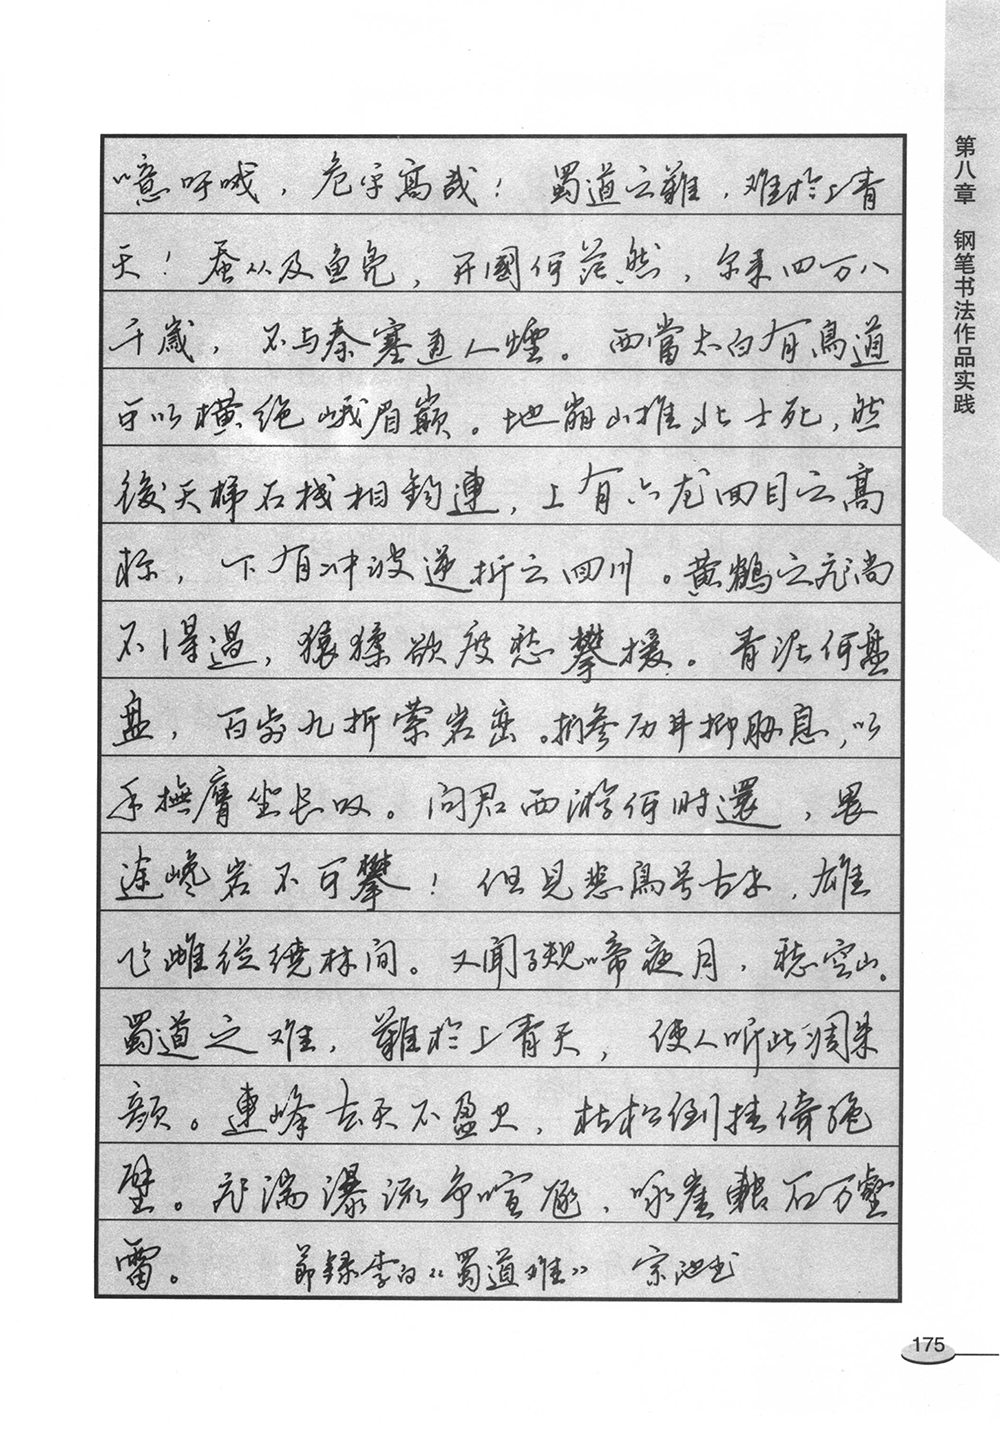 噫吁哦，危乎高哉！蜀道之難，难於上青
天！蚕丛及鱼凫，开國何茫然，尔来四万八
千歲，不与秦塞通人煙。西當太白有鳥道
可以横绝峨眉巅。地崩山摧壮士死，然
後天梯石栈相鈎連，上有六龙回日之高
标，下有冲波逆折之回川。黄鶴之飛尚
不得過，猿猱欲度愁攀援。青泥何盘
盘，百步九折萦岩峦。捫参历井仰胁息，以
手撫膺坐长叹。问君西游何时還，畏
途巉岩不可攀！但見悲鳥号古木，雄
飞雌從繞林间。又聞子规啼夜月，愁空山。
蜀道之难，難於上青天，使人听此凋朱
颜。連峰去天不盈尺，枯松倒挂倚绝
壁。飛湍瀑流争喧豗，咏崖轉石万壑
雷。 節録李白《蜀道难》 宗池书
第八章 钢笔书法作品实践
175